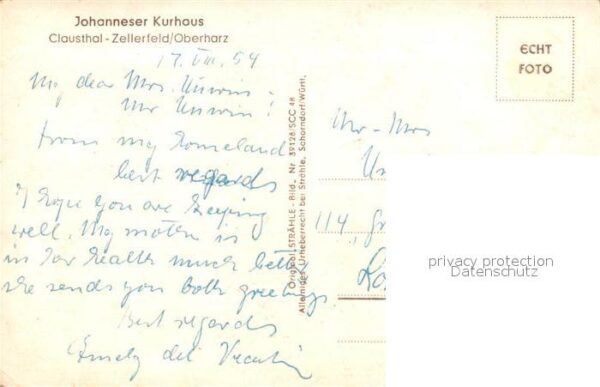 Johanneser Kurhaus
Clausthal-Zellerfeld/Oberharz
ECHT
FOTO
17. VIII. 54
My dear Mrs. Unwin,
Mr Unwin!
from my homeland
best regards
I hope you are keeping
well. My mother is
in her health much better
she sends you both greetings
Best regards
Original STRÄHLE-Bild, Nr. 39128/SCC 48
Alleiniges Urheberrecht bei Strähle, Schorndorf/Württ.
Mr-Mrs
Un
114, Gr
privacy protection
Datenschutz